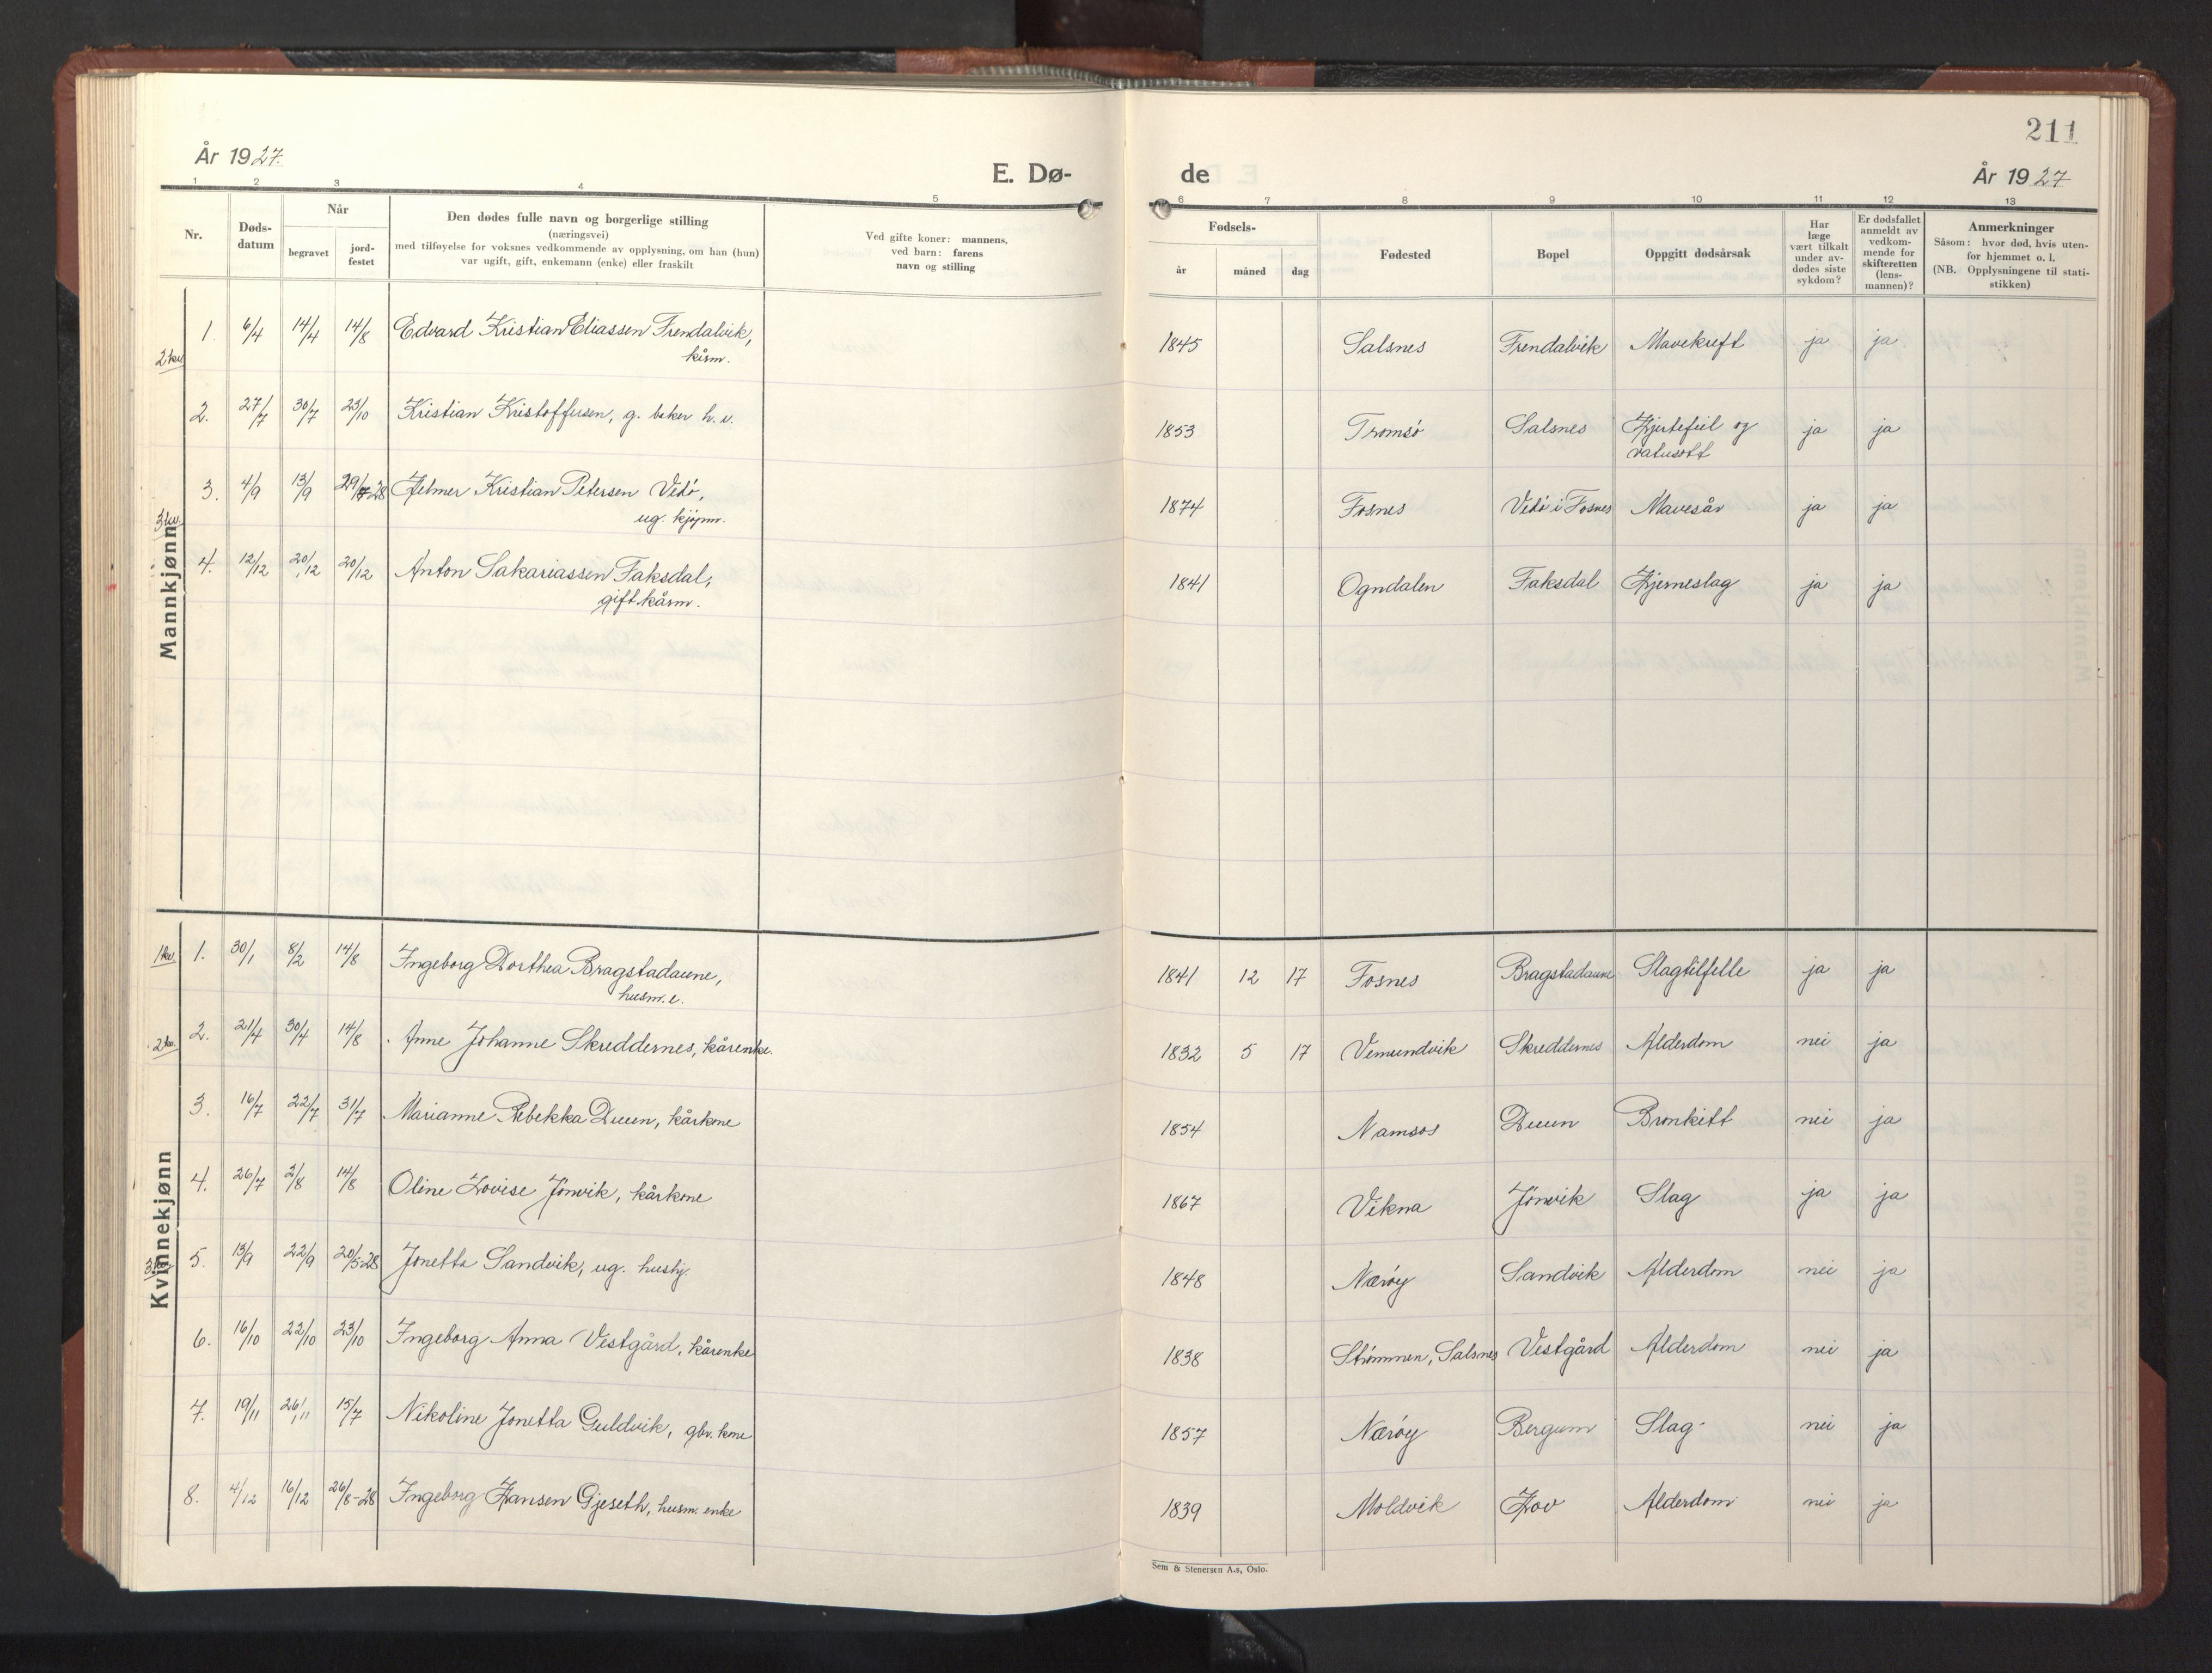 211
År 1927.
E. Dø-
de
År 1927
1 2 3 4 5
6 7 8 9 10 11 12 13
Nr.
Døds-
datum
Når
begravet
jord-
festet
Den dødes fulle navn og borgerlige stilling
(næringsvei)
med tilføyelse for voksnes vedkommende av opplysning, om han (hun)
var ugift, gift, enkemann (enke) eller fraskilt
Ved gifte koner: mannens,
ved barn: farens
navn og stilling
Fødsels-
år måned dag
Fødested
Bopel
Oppgitt dødsårsak
Har
læge
vært tilkalt
under av-
dødes siste
sykdom?
Er dødsfallet
anmeldt av
vedkom-
mende for
skifteretten
(lens-
mannen)?
Anmerkninger
Såsom: hvor død, hvis uten-
for hjemmet o. l.
(NB. Opplysningene til stati-
stikken)
Mannkjønn
2 kv
1. 6/4 14/4 14/8 Edvard Kristian Eliassen Frendalvik, 1845 Salsnes Frendalvik Mavekreft ja ja
kårm.
2. 27/7 30/7 23/10 Kristian Kristoffersen, g. baker h. v. 1853 Tromsø Salsnes Hjertefeil og ja ja
vatusott
3 kv.
3. 4/9 13/9 29/7-28 Helmer Kristian Petersen Vedø, 1874 Fosnes Vedø i Fosnes Mavesår ja ja
ug. kjøpm.
4. 12/12 20/12 20/12 Anton Sakariassen Faksdal, 1841 Ogndalen Faksdal Hjerneslag ja ja
gift kårm.
Kvinnekjønn
1 kv.
1. 30/1 8/2 14/8 Ingeborg Dorthea Bragstadaune, 1841 12 17 Fosnes Bragstadaune Slagtilfelle ja ja
husm. e.
2 kv.
2. 21/4 30/4 14/8 Anne Johanne Skreddernes, kårenke. 1832 5 17 Vemundvik Skreddernes Alderdom nei ja
3. 16/7 22/7 31/7 Marianne Rebekka Duun, kårkone 1854 Namsos Duun Bronkitt nei ja
4. 26/7 2/8 14/8 Oline Lovise Jønvik, kårkone 1867 Vikna Jønvik Slag ja ja
3 kv.
5. 13/9 22/9 20/5-28 Jonetta Sandvik, ug. hushj. 1848 Nærøy Sandvik Alderdom nei ja
6. 16/10 22/10 23/10 Ingeborg Anna Vestgård, kårenke 1838 Strømmen, Salsnes Vestgård Alderdom nei ja
7. 19/11 26/11 15/7 Nikoline Jonetta Guldvik, gbr. kone 1857 Nærøy Bergum Slag nei ja
8. 4/12 16/12 26/8-28 Ingeborg Hansen Gjeseth, husm. enke 1839 Moldvik Hov Alderdom nei ja
Sem & Stenersen A.s, Oslo.